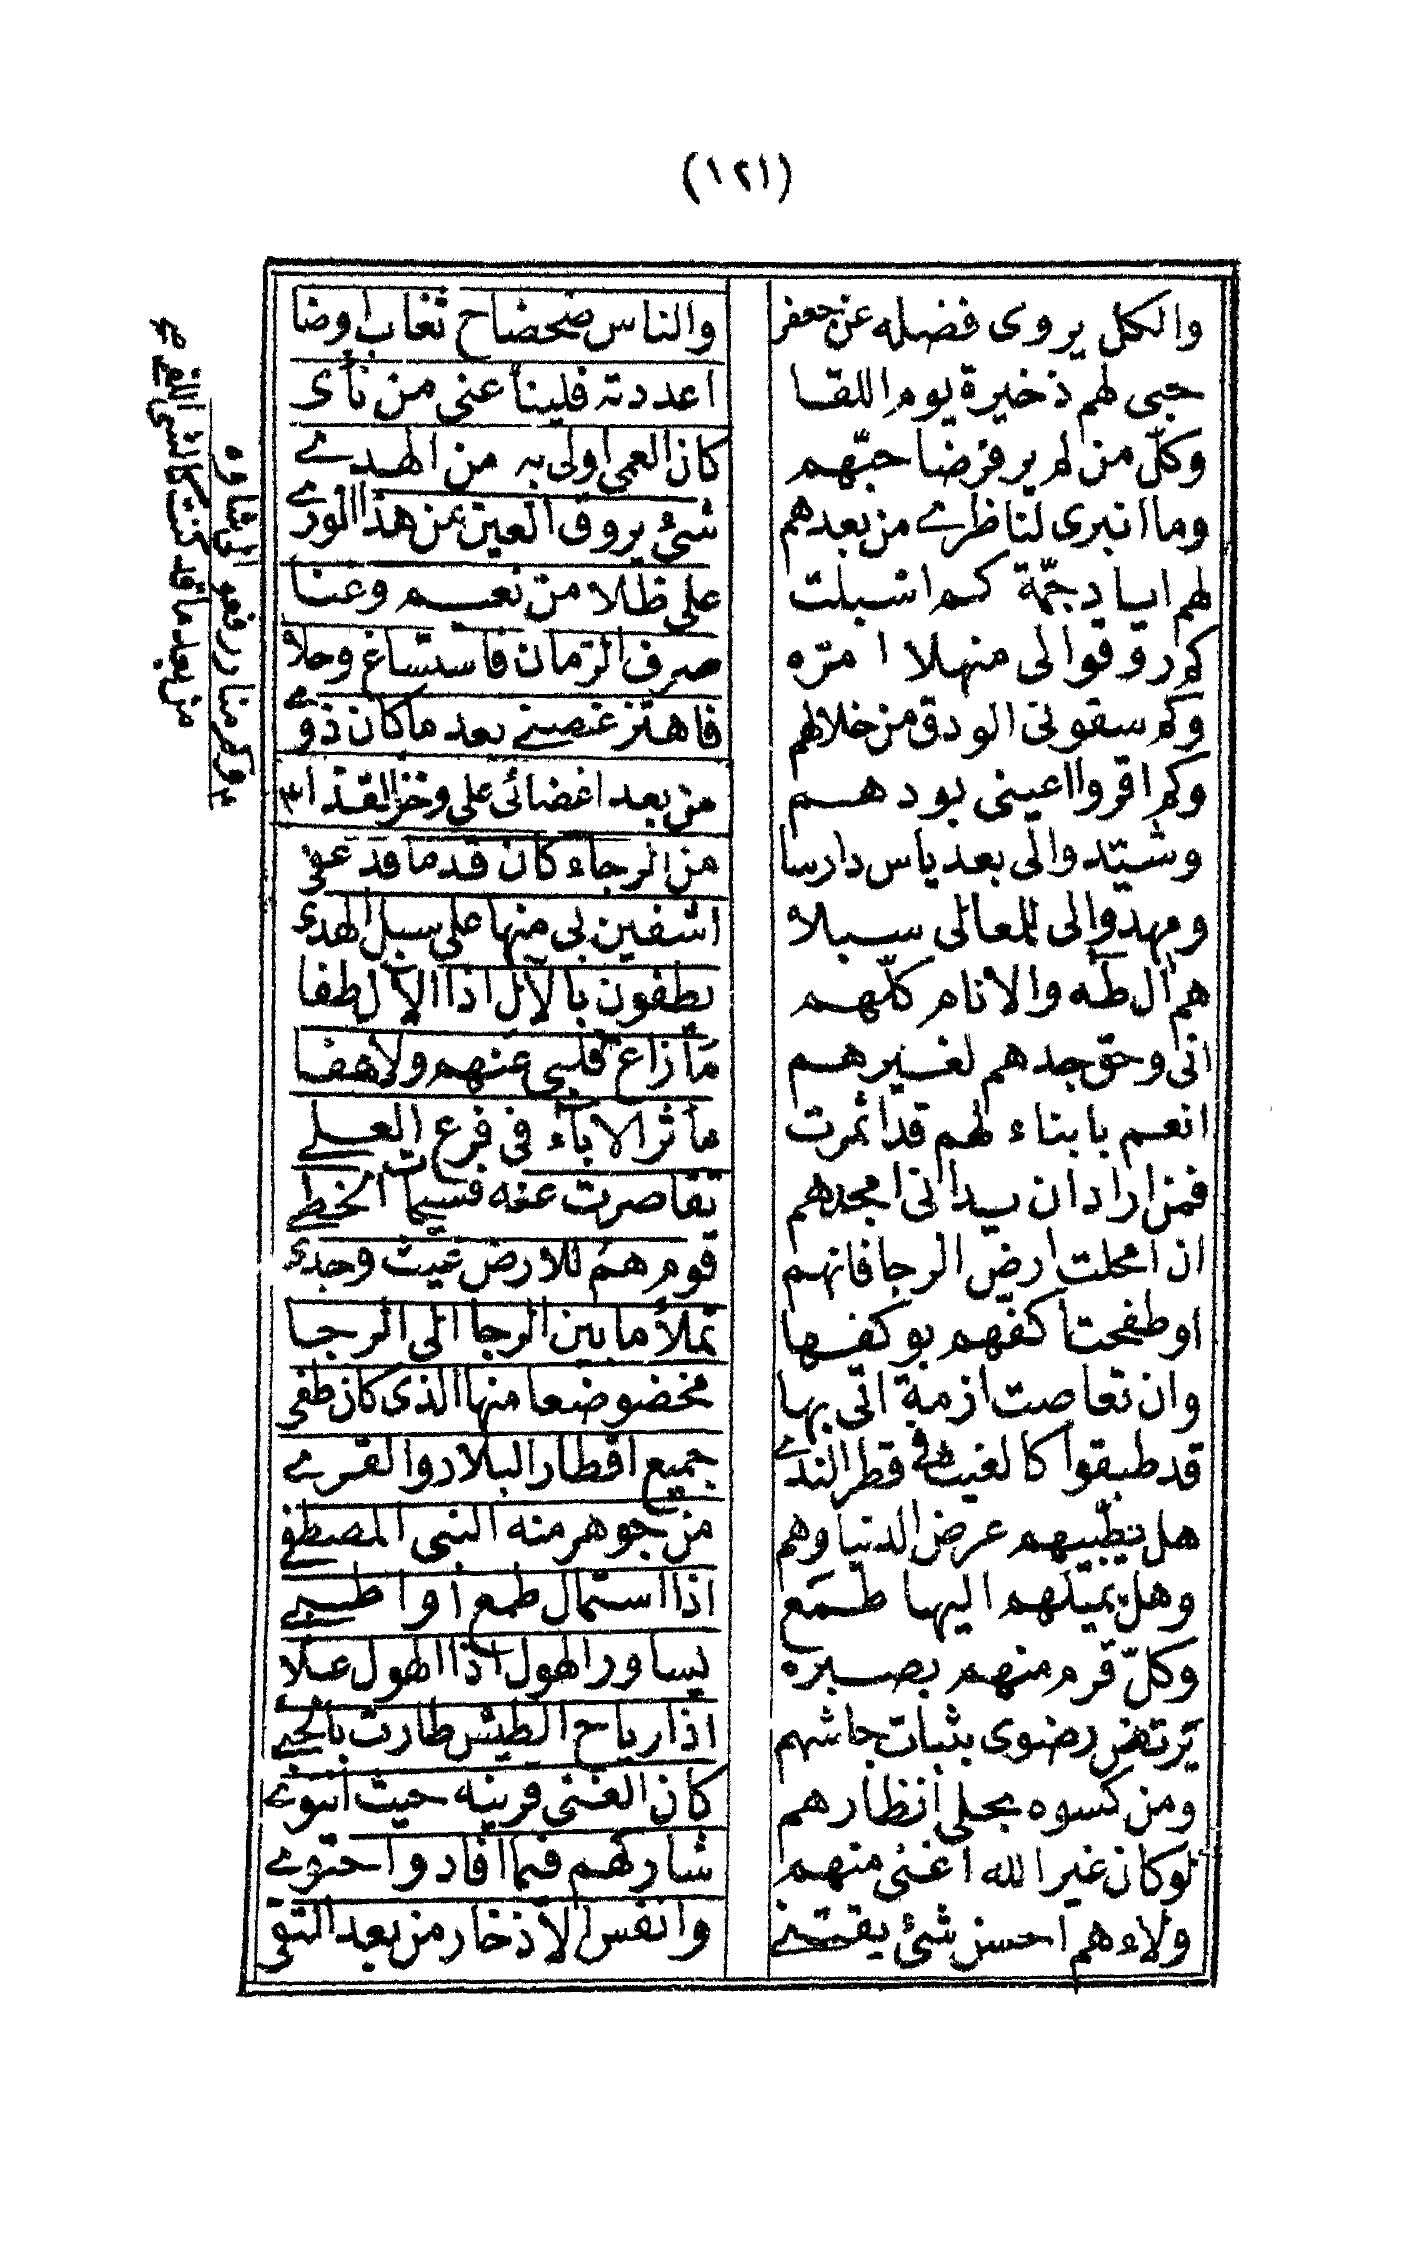 (١٢١)
والكل يروى فضله عن جعفر والناس ضحضاح ثغاب اوضا
حبى لهم ذخيرة يوم اللقا اعددته فلينأ عنى من نأى
وكلّ من لم ير فرضا حبّهم كان العمى اولى به من الهدى
وما انبرى لناظرى من بعدهم شئ يروق العين من هذا الورى
لهم اياد جمّة كم اسبلت على ظلالا من نعم وغنا
كم ردوا لى منهلا امرّه صرف الزمان فاستساغ وحلا
وكم سقونى الودق من خلالهم فاهتز غصنى بعد ما كان ذوى
وكم اقروا اعينى بودهم من بعد اغضائى على وخز القذا
وشيّدوا لى بعد ياس دارسا من الرجاء كان قدما قد عفى
ومهدوا لى للمعالى سبلا اشفين بى منها على سبل الهدى
هم آل طه والانام كلّهم يطفون بالآل اذا الآل طفا
انى وحق جدهم لغيرهم ما زاغ قلبى عنهم ولا هفا
انعم بابناء لهم قد اثمرت مآثر الاباء فى فرع العلى
فمن اراد ان يدانى مجدهم تقاصرت عنه فسيحات الخطى
ان امحلت ارض الرجا فانهم قوم هم للارض غيث وجدى
او طفحت اكفهم بوكفها تملأ ما بين الرجا الى الرجا
وان تعاصت ازمة اتى بها مخضوضعا منها الذى كان طغى
قد طبقوا كالغيث فى قطر الندى جميع اقطار البلاد والقرى
هل يطّبيهم عرض الدنيا وهم من جوهر منه النبى المصطفى
وهل يميلهم اليها طمع اذا استمال طمع او اطبى
وكلّ قرم منهم بصبره يساور الهول اذا الهول علا
يرتض رضوى بثبات جاشهم اذا رياح الطيش طارت بالحبى
ومن كسوه بجلى انظارهم كان الغنى قرينه حيث انتوى
لو كان غير الله اغنى منهم شاركهم فيما افاد واحتوى
ولاءهم احسن شئ يقتنى وانفس الاذخار من بعد التقى
من بعد ما قد كنت كالشئ اللقى